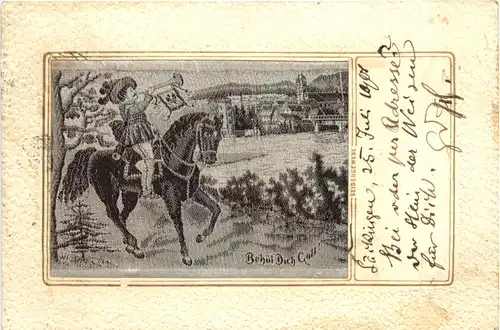 Behüt Dich Gott!
SEIDENGEWEBE
Säckingen, 25. Juli 1901
Bei oder per Adresse?
der Hein, der Weisen
für Dich.